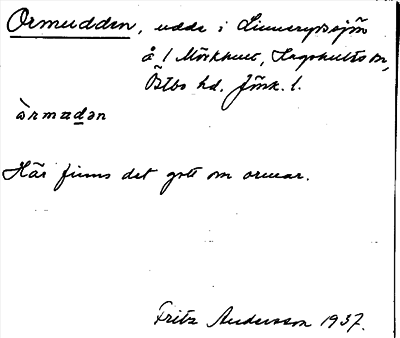 Ormudden, udde i Linnerydssjön
å 1 Mörkhult, Kågeholts sn,
Östbo hd. Jönk. l.
òrmudən
Här finns det gott om ormar.
Fritz Andersson 1937.